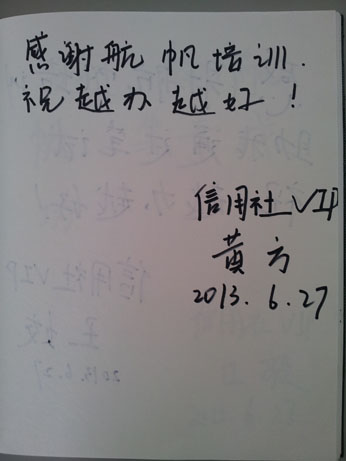 感谢航帆培训.
祝越办越好!
信用社VIP
黄方
2013.6.27